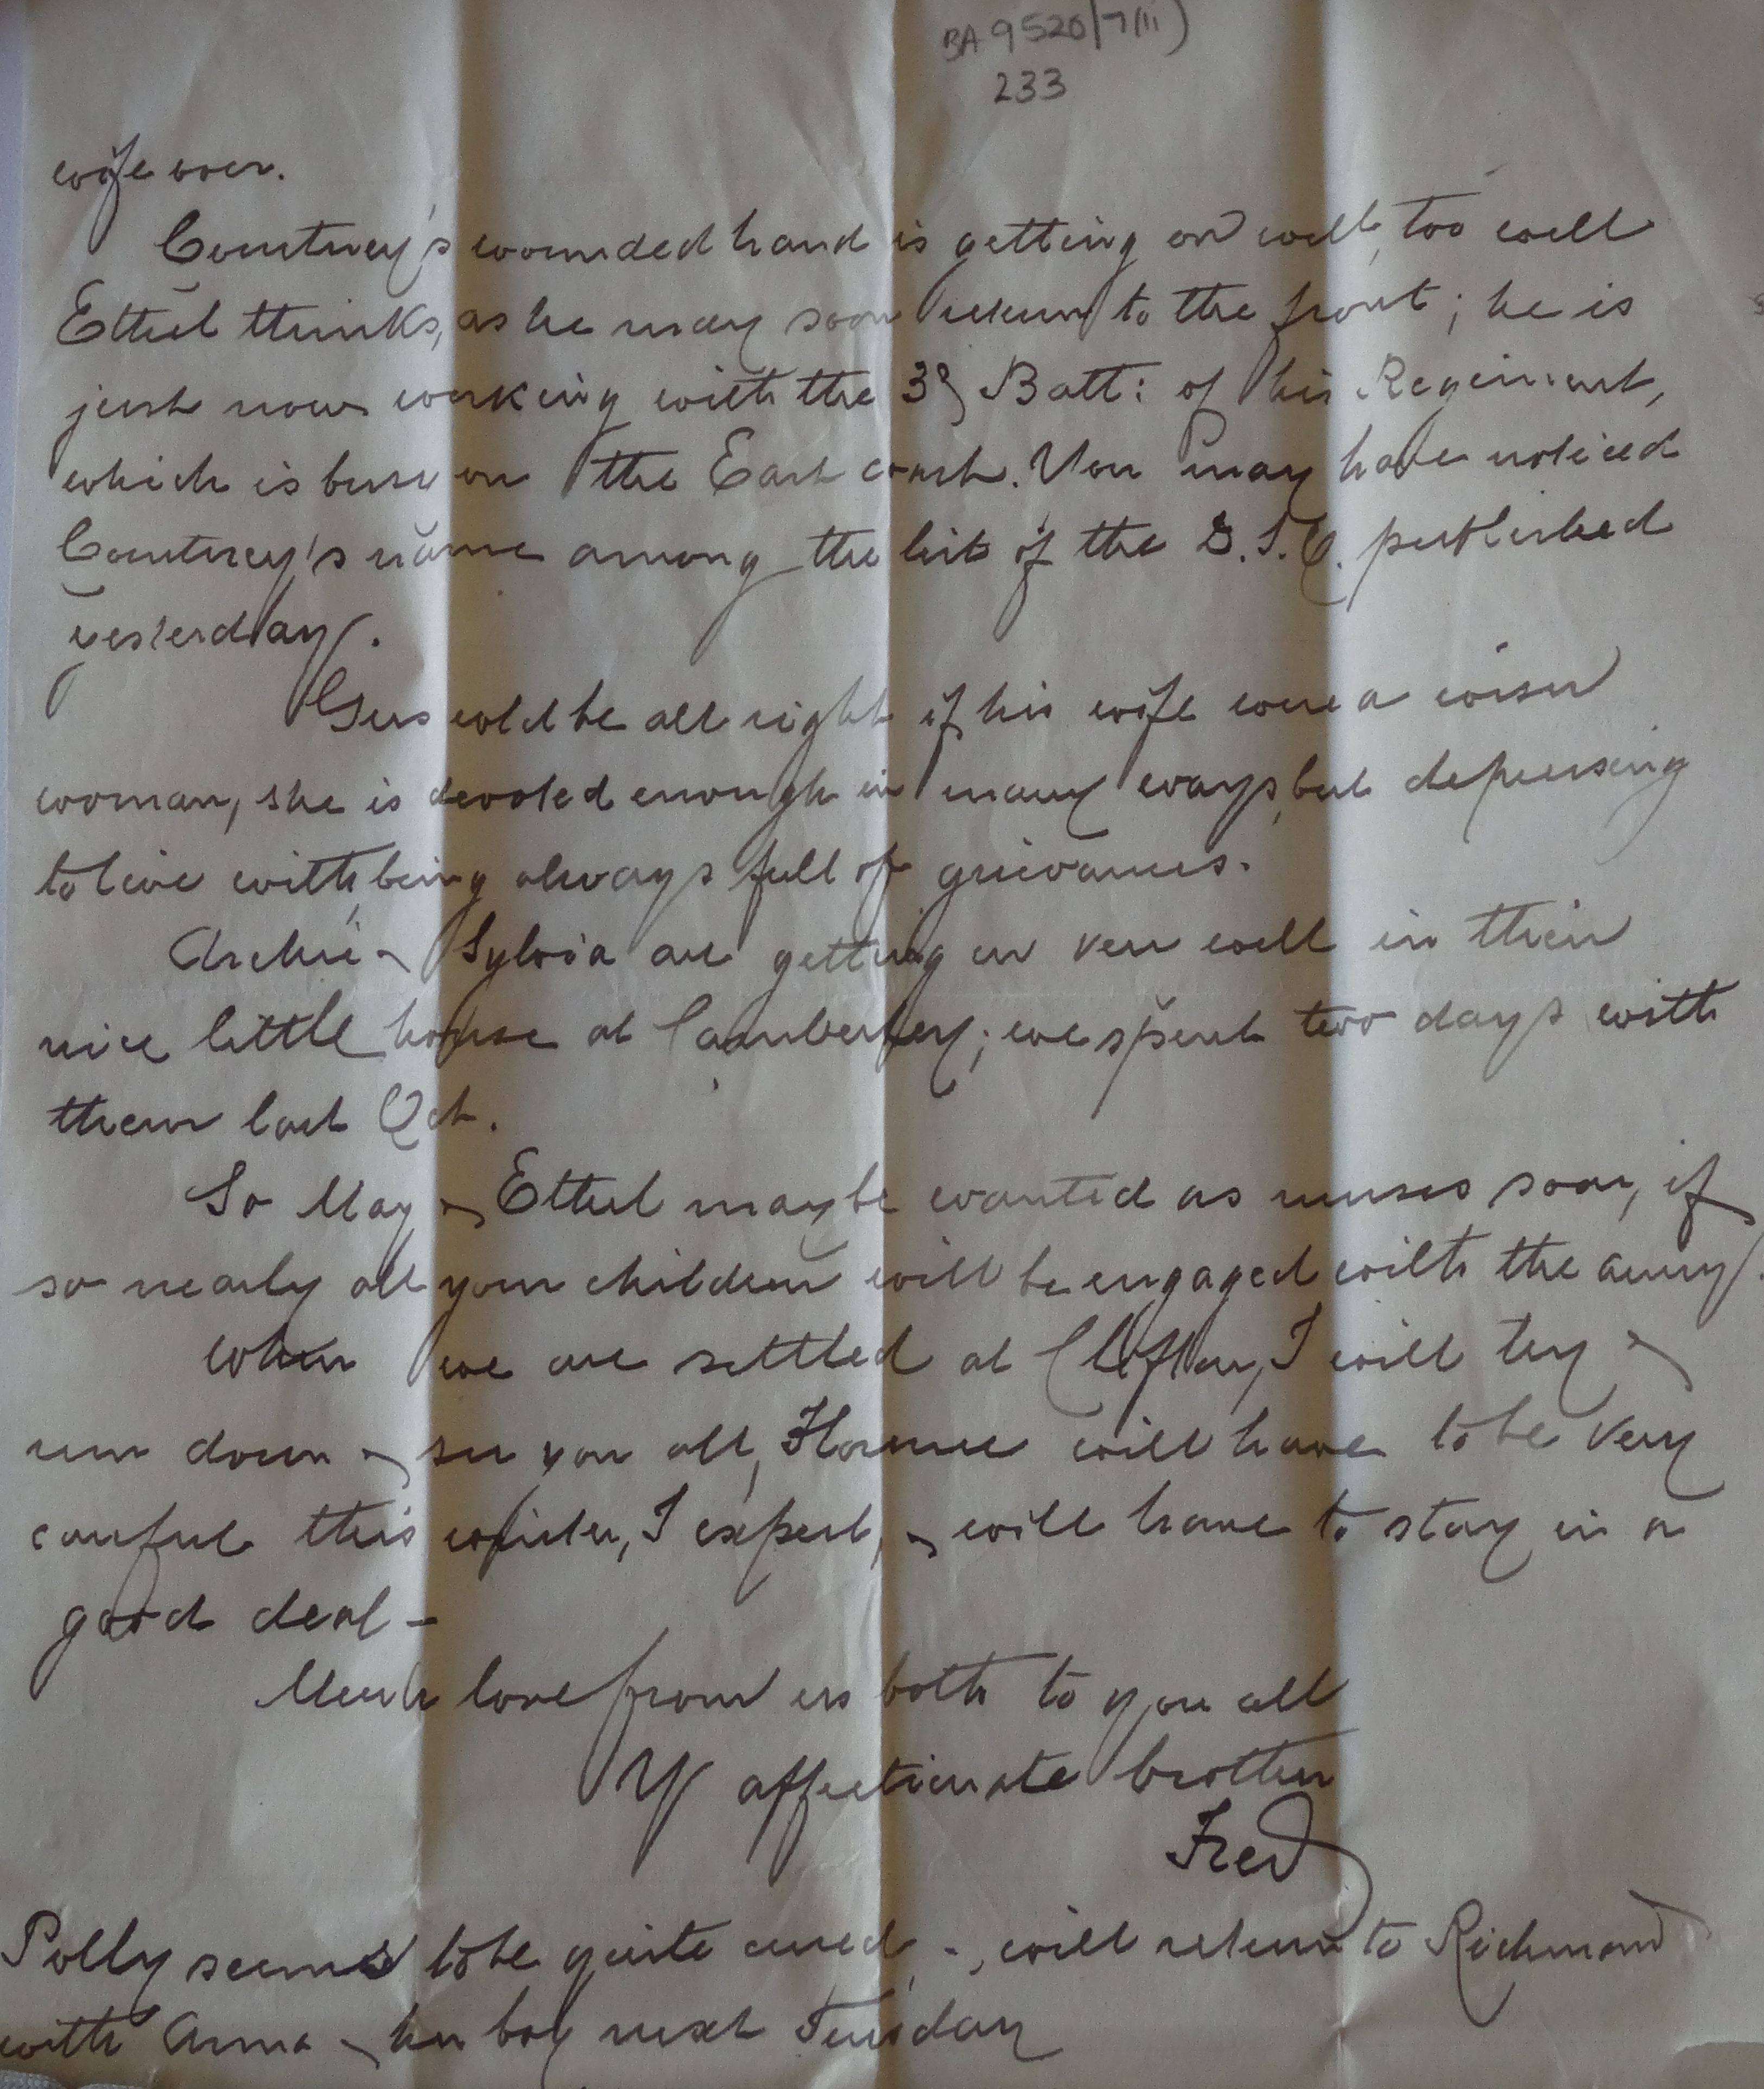 BA 9520/7(ii)
233
wife over.
Courtney's wounded hand is getting on well, too well
Ethel thinks, as he may soon return to the front; he is
just now working with the 3d Batt: of his Regiment,
which is busy on the East coast. You may have noticed
Courtney's name among the list of the D.S.O. published
yesterday.
Gus wld be all right if his wife were a wiser
woman, she is devoted enough in many ways, but depressing
to live with, being always full of grievances.
Archie & Sylvia are getting on very well in their
nice little house at Camberley; we spent two days with
them last Oct.
So May & Ethel may be wanted as nurses soon, if
so nearly all your children will be engaged with the army.
When we are settled at Clifton, I will try &
run down & see you all, Florence will have to be very
careful this winter, I expect, & will have to stay in a
good deal -
Much love from us both to you all
Yr affectionate brother
Fred
Polly seems to be quite cured, & will return to Richmond
with Anna & her boy next Tuesday